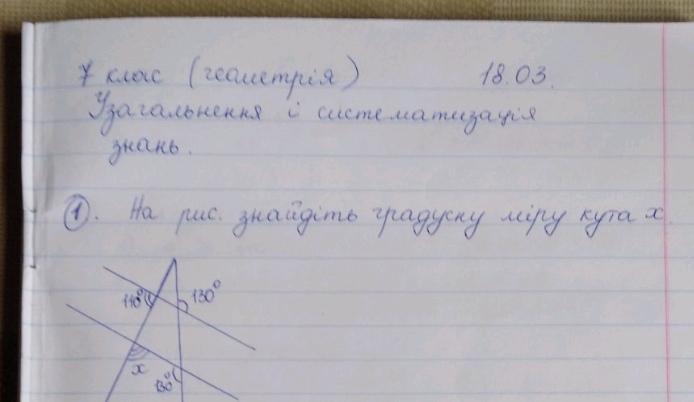 7 клас (геометрія) 18.03.
Узагальнення і систематизація
знань.
1. На рис. знайдіть градусну міру кута x.
110° 130°
x
130°